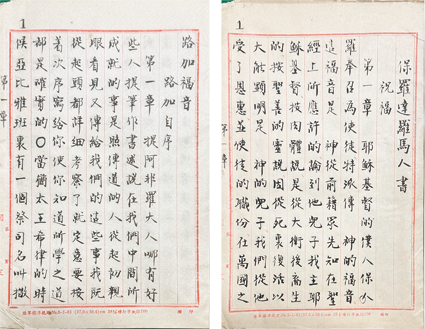 1
路加福音
路加自序
第一章 提阿非羅大人哪有好
些人提筆作書述說在我們中間所
成就的事是照傳道的人從起初親
眼看見又傳給我們的這些事我既
從起頭都詳細考察了就定意要按
著次序寫給你使你知道所學之道
都是確實的〇當猶太王希律的時
候亞比雅班裏有一個祭司名叫撒
第一章
1
保羅達羅馬人書
祝福
第一章 耶穌基督的僕人保
羅奉召為使徒特派傳 神的福音
這福音是 神從前藉眾先知在聖
經上所應許的論到他兒子我主耶
穌基督按肉體說是從大衛後裔生
的按聖善的靈說因從死裏復活以
大能顯明是 神的兒子我們從他
受了恩惠並使徒的職份在萬國之